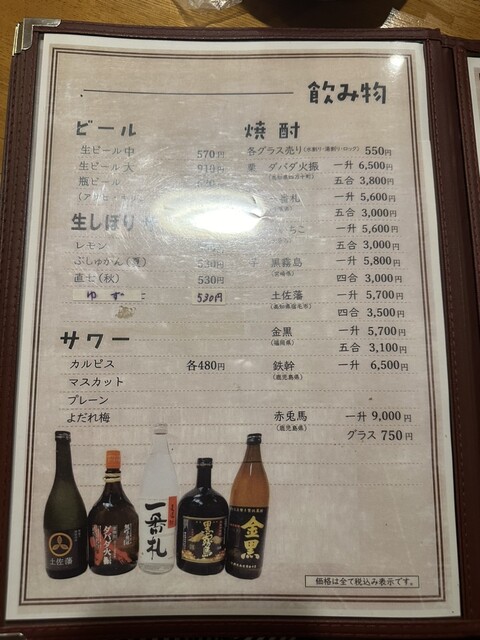 飲み物
ビール
生ビール 中 570円
生ビール 大 910円
瓶ビール
生しぼり
レモン
ぶしゅかん(夏) 530円
直七(秋) 530円
ゆず 530円
サワー
カルピス 各480円
マスカット
プレーン
よだれ梅
焼酎
各グラス売り(水割り・湯割り・ロック) 550円
栗 ダバダ火振 一升 6,500円
(高知県四万十町) 五合 3,800円
番札 一升 5,600円
五合 3,000円
ちこ 一升 5,600円
五合 3,000円
芋 黒霧島 一升 5,800円
(宮崎県) 四合 3,000円
土佐藩 一升 5,700円
(高知県宿毛市) 四合 3,500円
金黒 一升 5,700円
(福岡県) 五合 3,100円
鉄幹 一升 6,500円
(鹿児島県)
赤兎馬 一升 9,000円
(鹿児島県) グラス 750円
土佐藩
ダバダ火振
一番札
黒霧島
金黒
価格は全て税込み表示です。